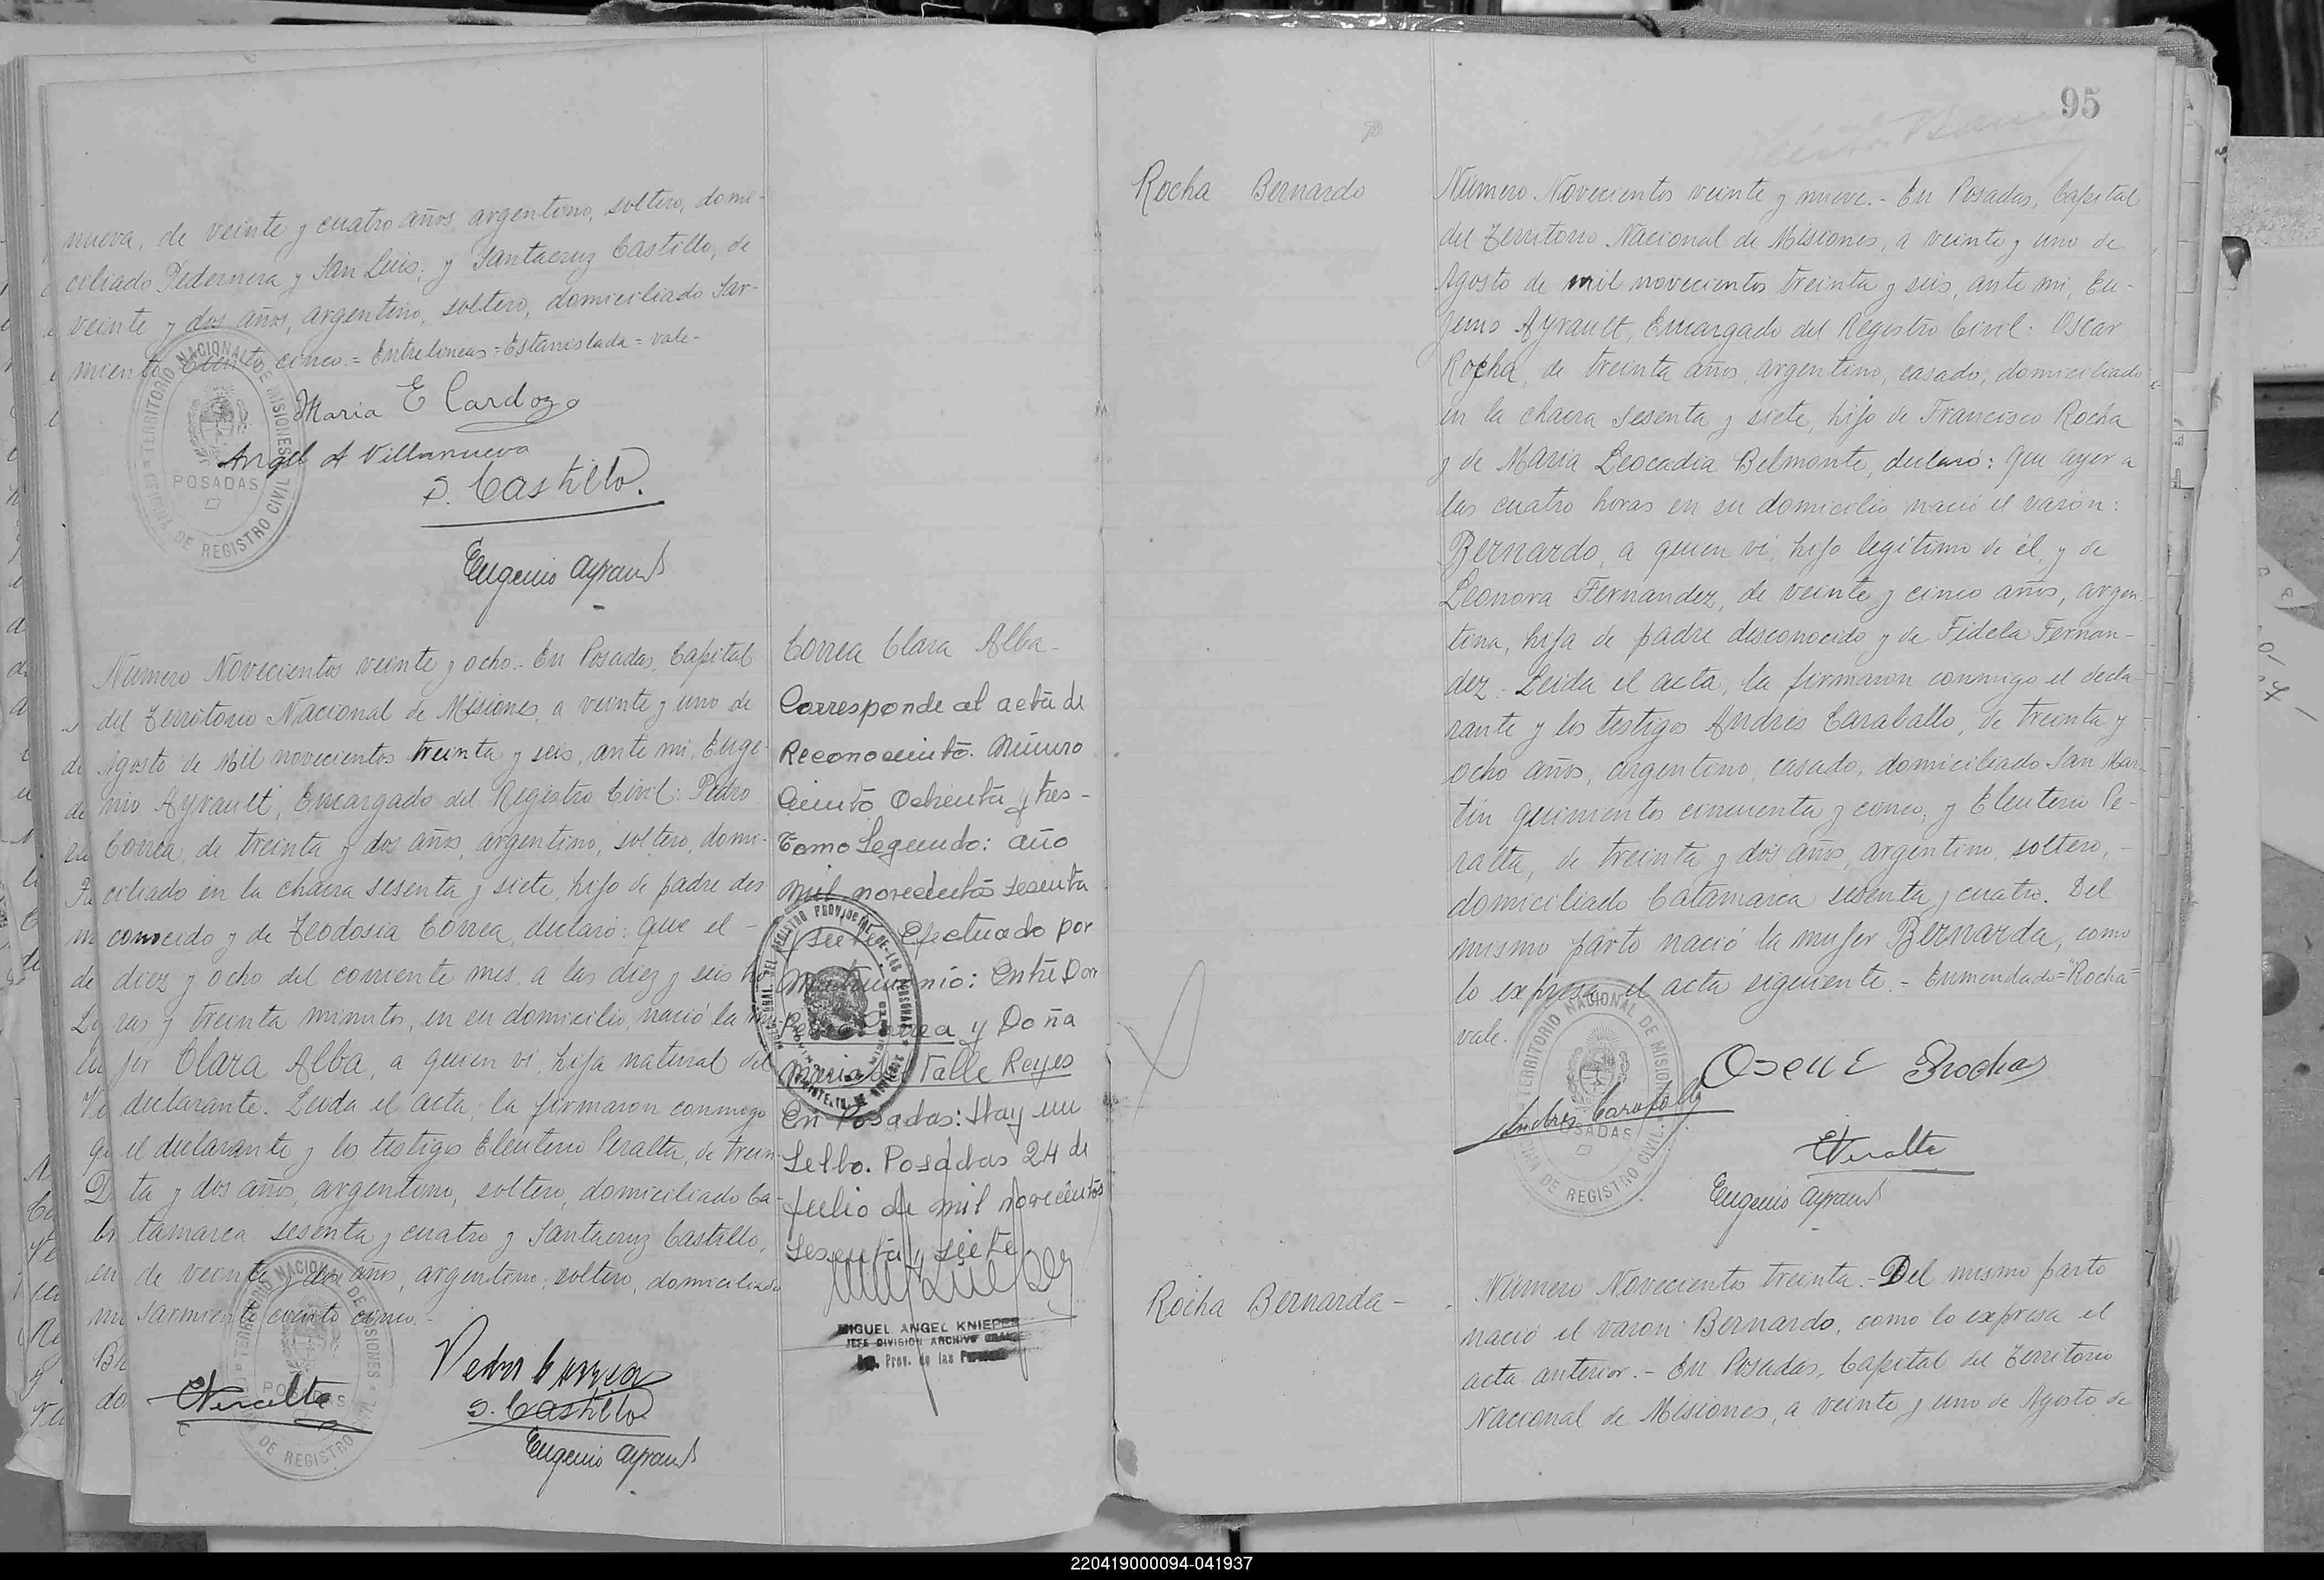 nueva, de veinte y cuatro años, argentino, soltero, domi-
ciliado Pedernera y San Luis; y Santacruz Castillo, de
veinte y dos años, argentino, soltero, domiciliado Sar-
miento ciento cinco.= Entrelineas=Estanislada=vale-
Maria E Cardozo
Angel A Villanueva
S. Castillo.
Eugenio Ayrault
TERRITORIO NACIONAL DE MISIONES
POSADAS
OFICINA DE REGISTRO CIVIL
Número Novecientos veinte y ocho.- En Posadas, Capital
del Territorio Nacional de Misiones, a veinte y uno de
Agosto de Mil novecientos treinta y seis, ante mi, Euge-
nio Ayrault, Encargado del Registro Civil: Pedro
Correa, de treinta y dos años, argentino, soltero, domi-
ciliado en la chacra sesenta y siete, hijo de padre des
conocido y de Teodosia Correa, declaró: que el -
diez y ocho del corriente mes, a las diez y seis ho
ras y treinta minutos, en su domicilio, nació la mu-
jer Clara Alba, a quien vi, hija natural del
declarante. Leida el acta, la firmaron conmigo
el declarante y los testigos Eleuterio Peralta, de trein
ta y dos años, argentino, soltero, domiciliado Ca-
tamarca sesenta y cuatro y Santacruz Castillo,
de veinte y dos años, argentino, soltero, domiciliado
Sarmiento ciento cinco.-
Pedro Correa
EPeralta
S. Castillo
Eugenio Ayrault
TERRITORIO NACIONAL DE MISIONES
POSADAS
OFICINA DE REGISTRO CIVIL
Correa Clara Alba-
Corresponde al acta de
Reconocimiento. Número
Ciento Ochenta y tres-
Tomo Segundo: año
mil novecientos sesenta
y siete. Efectuado por
Matrimonio: Entre Don
Pedro Correa y Doña
Maria del Valle Reyes
En Posadas: Hay un
Sello. Posadas 24 de
Julio de mil novecientos
sesenta y siete
MIGUEL ANGEL KNIEPER
JEFE DIVISION ARCHIVO GRAL
Prov. de las Personas
95
Rocha Bernardo
Número Novecientos veinte y nueve.- En Posadas, Capital
del Territorio Nacional de Misiones, a veinte y uno de
Agosto de mil novecientos treinta y seis, ante mi, Eu-
genio Ayrault, Encargado del Registro Civil: Oscar
Rocha, de treinta años, argentino, casado, domiciliado
en la chacra sesenta y siete, hijo de Francisco Rocha
y de Maria Leocadia Belmonte, declaró: que ayer a
las cuatro horas en su domicilio nació el varón:
Bernardo, a quien vi, hijo legítimo de él, y de
Leonora Fernandez, de veinte y cinco años, argen-
tina, hija de padre desconocido y de Fidela Fernan-
dez. Leida el acta, la firmaron conmigo el decla-
rante y los testigos Andrés Caraballo, de treinta y
ocho años, argentino, casado, domiciliado San Mar-
tín quinientos cincuenta y cinco, y Eleuterio Pe-
ralta, de treinta y dos años, argentino, soltero,-
domiciliado Catamarca sesenta y cuatro. Del
mismo parto nació la mujer Bernarda, como
lo expresa el acta siguiente.- Enmendado="Rocha"=
vale.
Andres Caraballo
EPeralta
Eugenio Ayrault
TERRITORIO NACIONAL DE MISIONES
POSADAS
OFICINA DE REGISTRO CIVIL
Rocha Bernarda-
Número Novecientos treinta.- Del mismo parto
nació el varon Bernardo, como lo expresa el
acta anterior.- En Posadas, Capital del Territorio
Nacional de Misiones, a veinte y uno de Agosto de
220419000094-041937